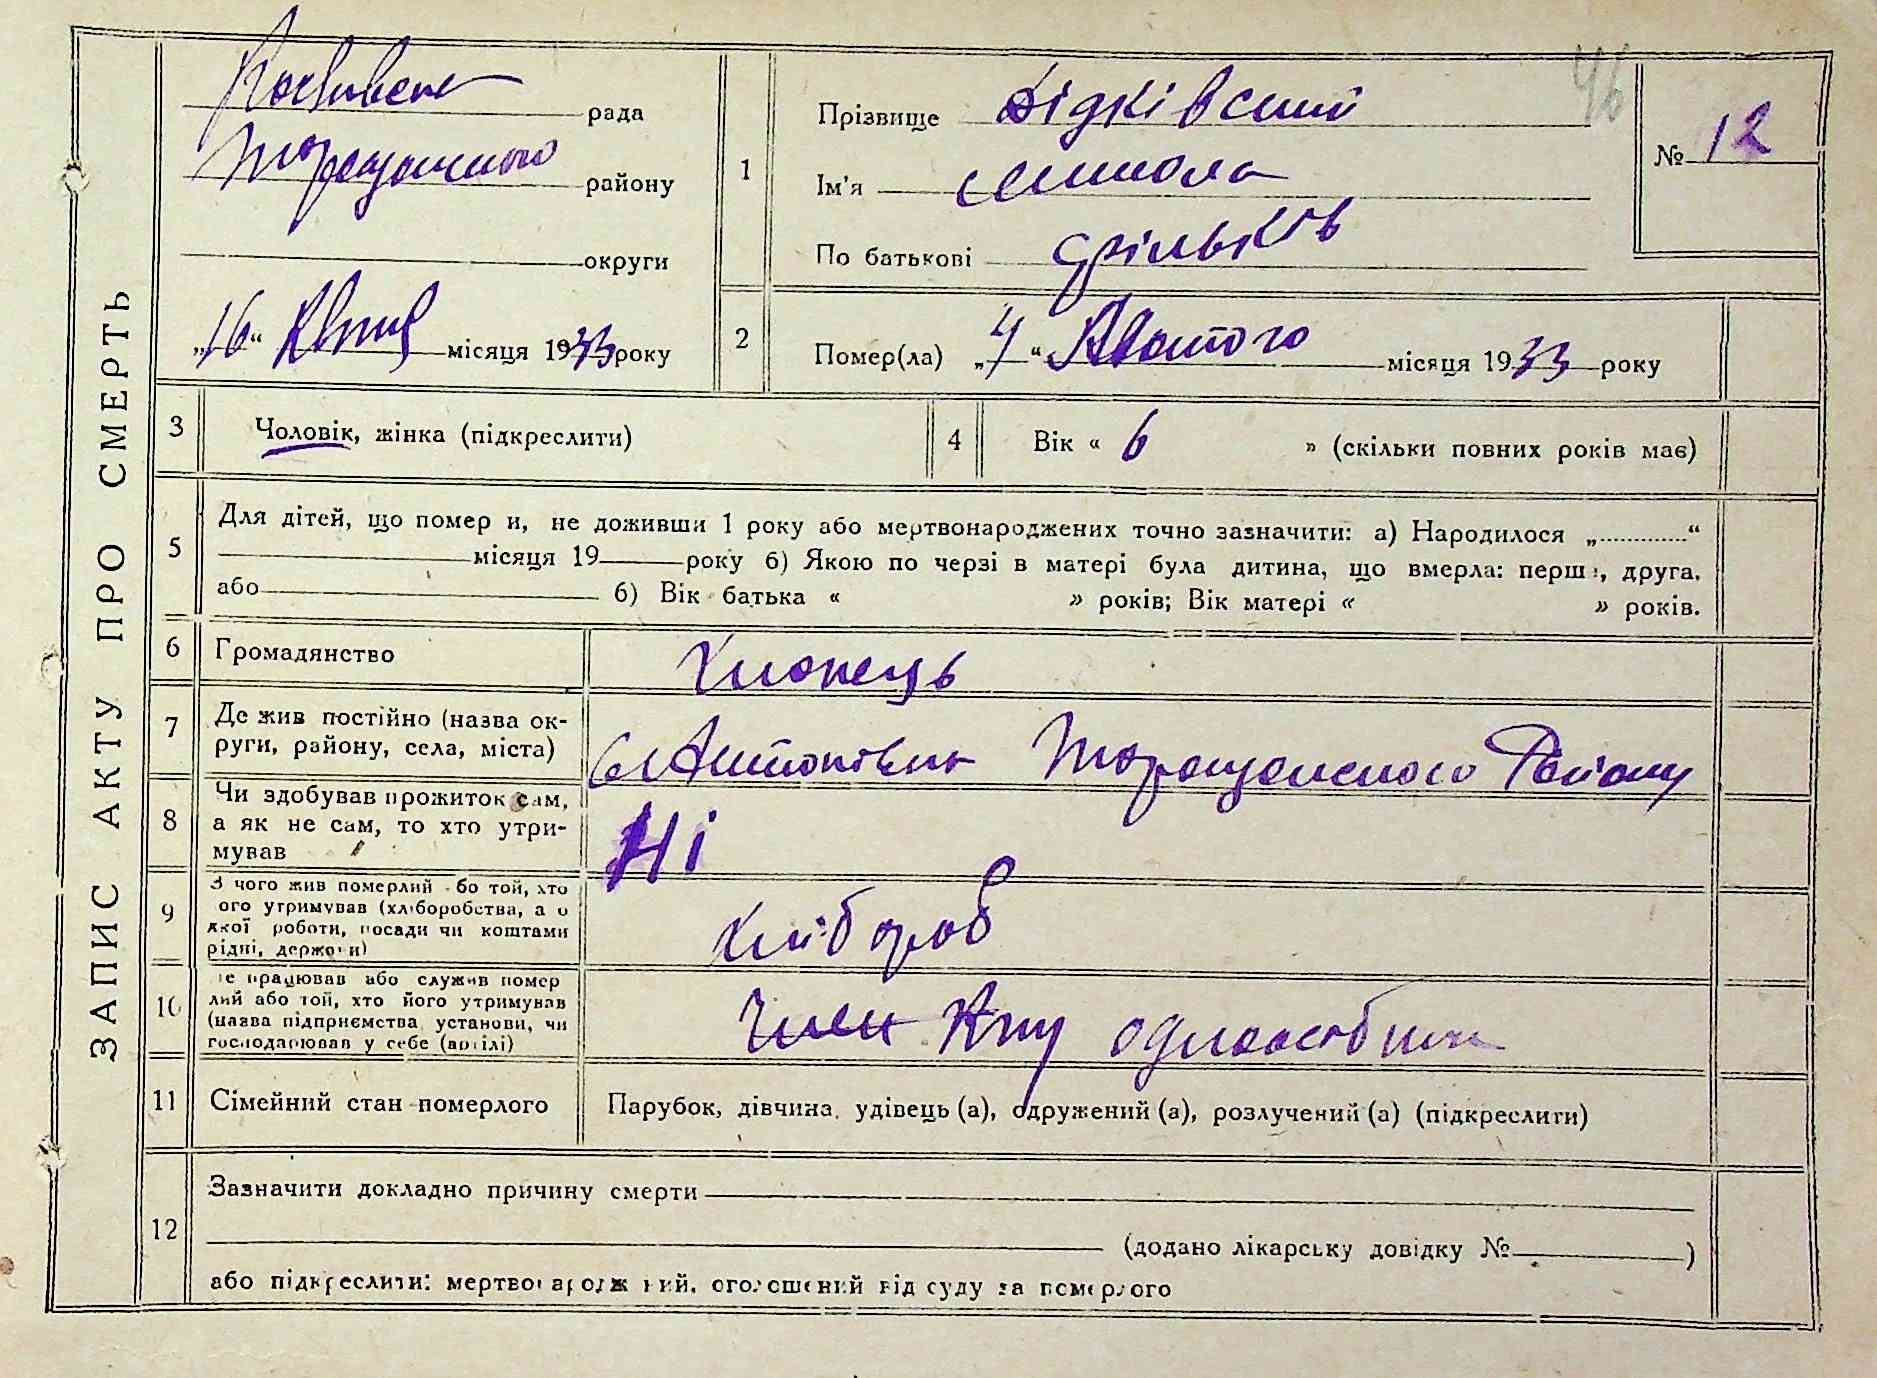 ЗАПИС АКТУ ПРО СМЕРТЬ
рада
Таращанського району
округи
„16“ Квітня місяця 1933 року
46
№ 12
1
Прізвище Дідківський
Ім'я Микола
По батькові
2
Помер(ла) „4“ Лютого місяця 1933 року
3
Чоловік, жінка (підкреслити)
4
Вік « 6 » (скільки повних років має)
5
Для дітей, що помер и, не доживши 1 року або мертвонароджених точно зазначити: а) Народилося „.............“
місяця 19 року б) Якою по черзі в матері була дитина, що вмерла: перша, друга,
або б) Вік батька « » років; Вік матері « » років.
6
Громадянство
Хлопець
7
Де жив постійно (назва ок-
руги, району, села, міста)
с Антонівка Таращанського Району
8
Чи здобував прожиток сам,
а як не сам, то хто утри-
мував
Ні
9
З чого жив померлий або той, хто
ого утримував (хліборобства, а о
якої роботи, посади чи коштами
рідні, держави)
Хлібороб
10
е працював або служив помер
лий або той, хто його утримував
(назва підприємства, установи, чи
господарював у себе (артілі)
Член одноосібник
11
Сімейний стан померлого
Парубок, дівчина, удівець (а), одружений (а), розлучений (а) (підкреслити)
12
Зазначити докладно причину смерти
(додано лікарську довідку № )
або підкреслити: мертвонароджений, оголошений від суду за померлого